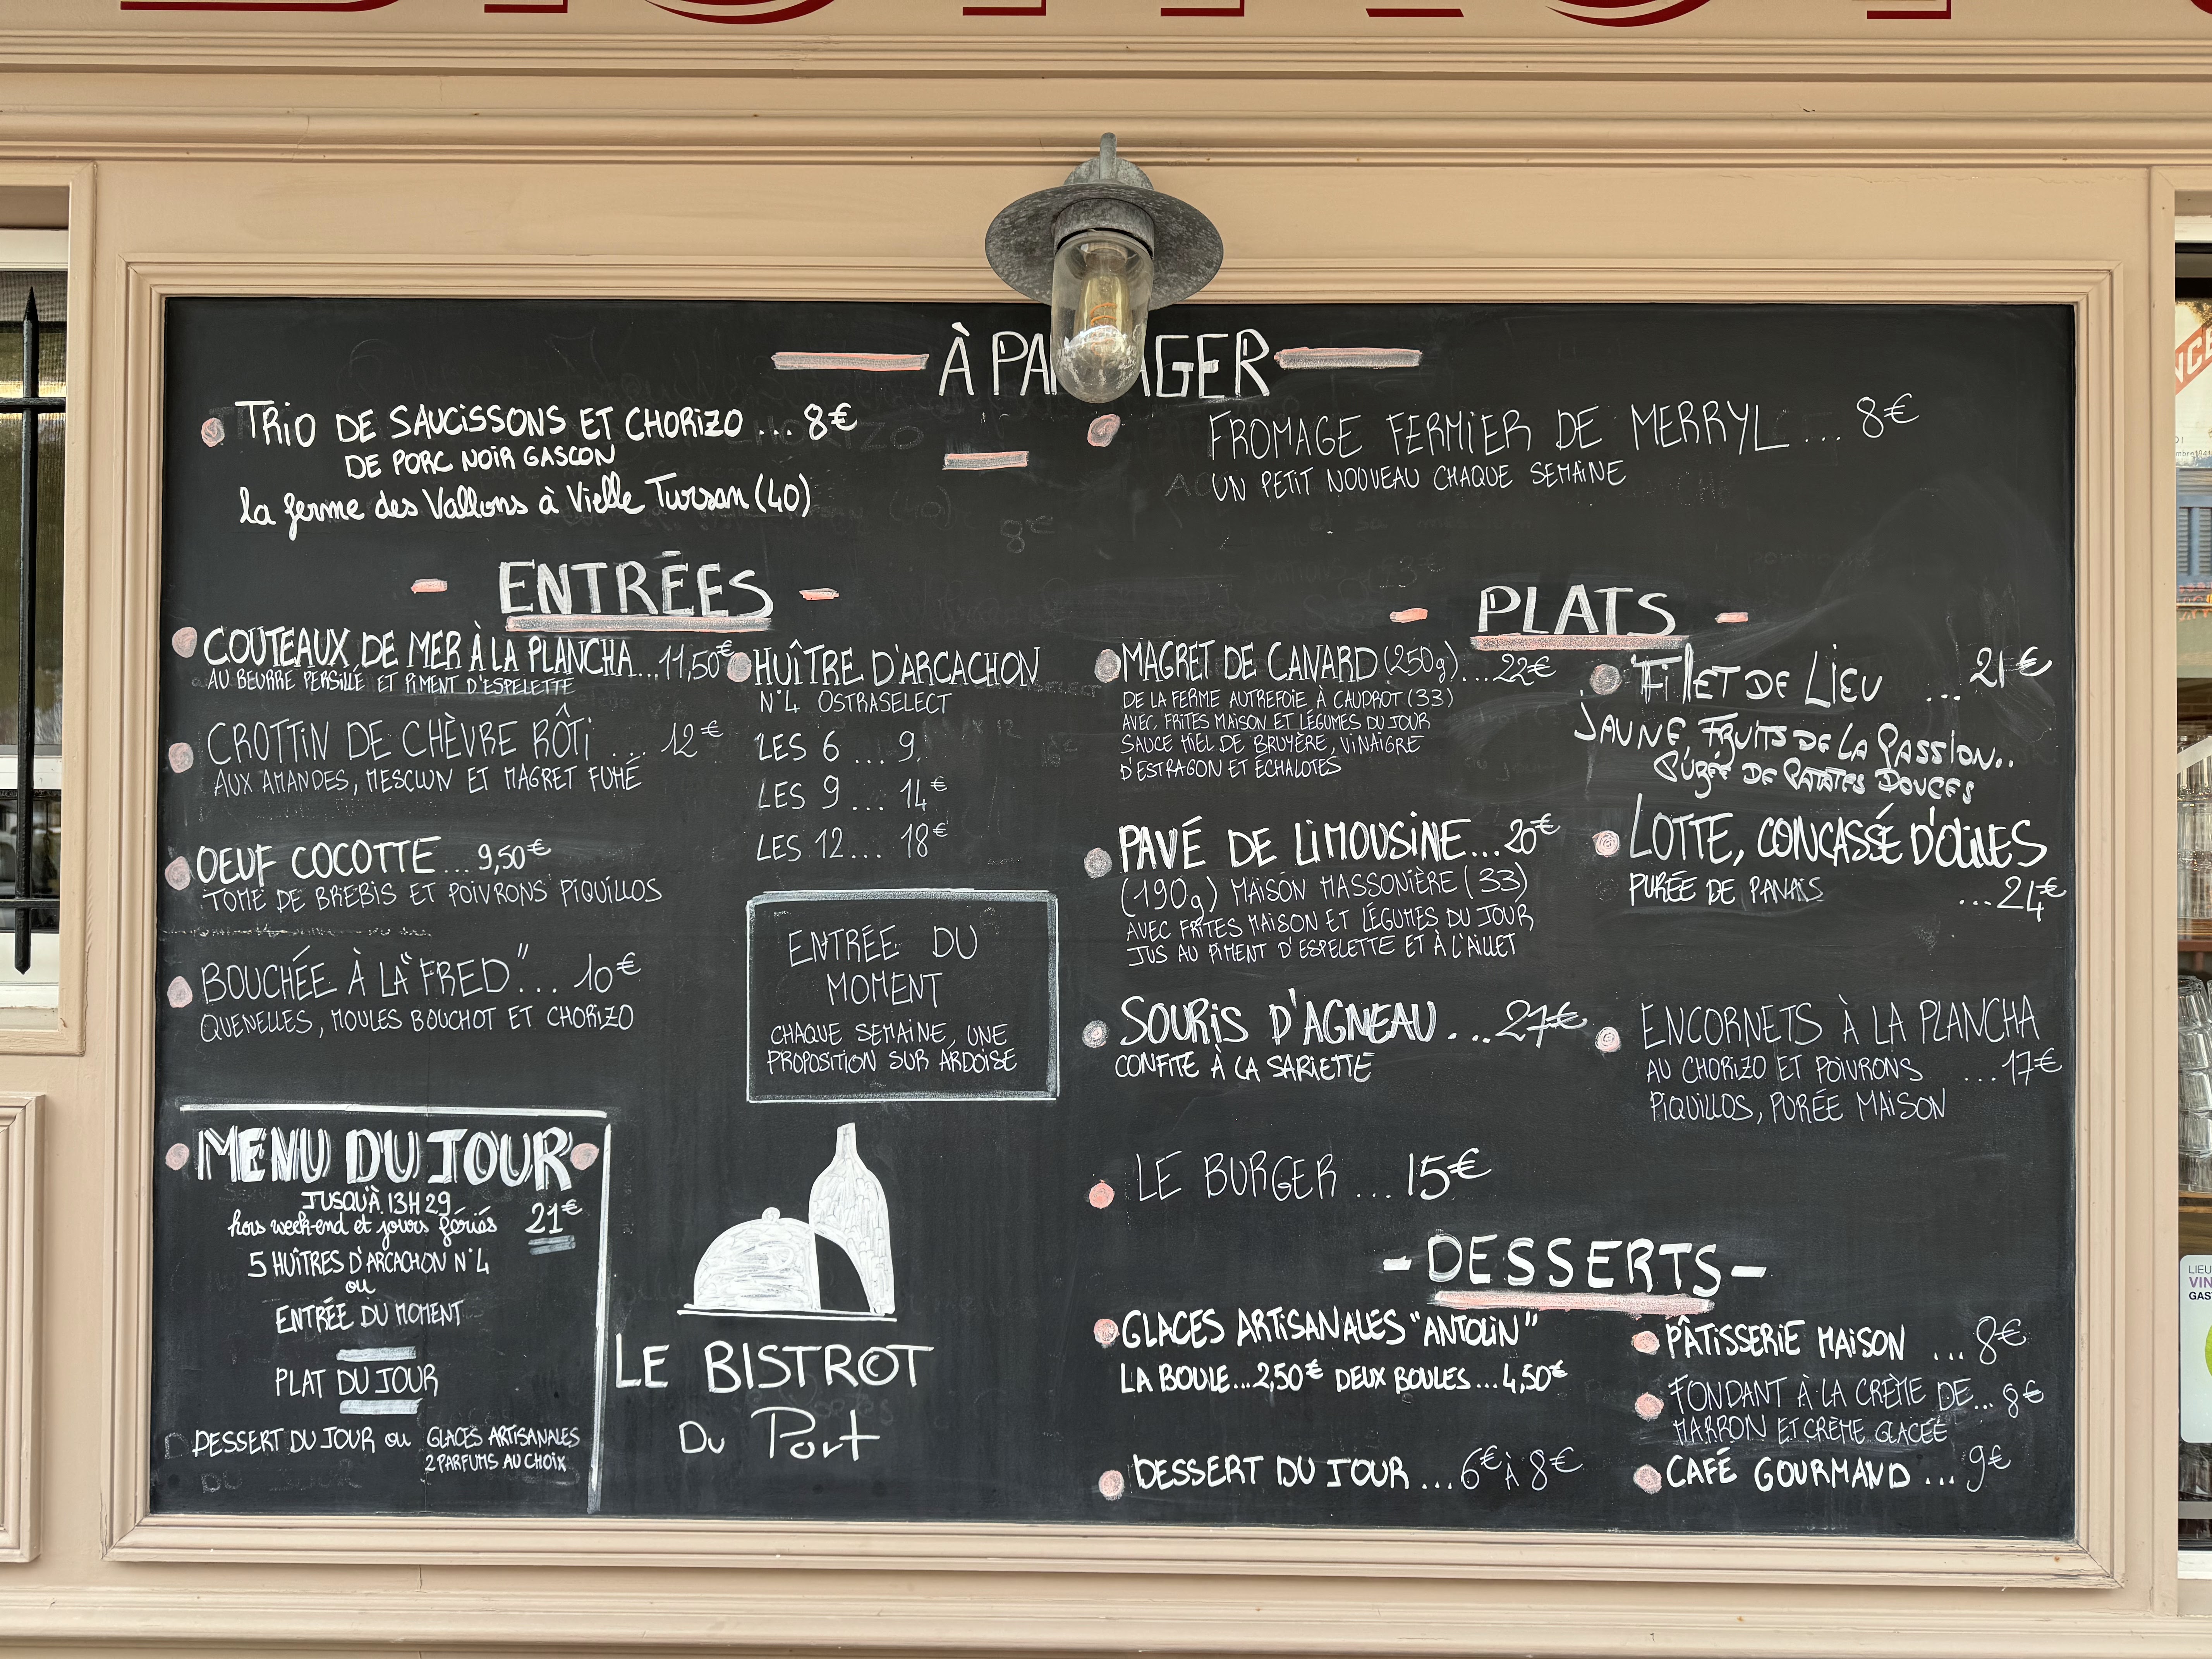 À PA AGER
TRIO DE SAUCISSONS ET CHORIZO ... 8€
DE PORC NOIR GASCON
la ferme des Vallons à Vielle Tursan (40)
FROMAGE FERMIER DE MERRYL ... 8€
UN PETIT NOUVEAU CHAQUE SEMAINE
- ENTRÉES -
COUTEAUX DE MER À LA PLANCHA...11,50€
AU BEURRE PERSILLÉ ET PIMENT D'ESPELETTE
CROTTIN DE CHÈVRE RÔTI ... 12€
AUX AMANDES, MESCLUN ET MAGRET FUMÉ
OEUF COCOTTE...9,50€
TOME DE BREBIS ET POIVRONS PIQUILLOS
BOUCHÉE À LA "FRED"... 10€
QUENELLES, MOULES BOUCHOT ET CHORIZO
HUÎTRE D'ARCACHON
N°4 OSTRASELECT
LES 6 ... 9
LES 9 ... 14€
LES 12 ... 18€
ENTRÉE DU
MOMENT
CHAQUE SEMAINE, UNE
PROPOSITION SUR ARDOISE
- PLATS -
MAGRET DE CANARD (250g)...22€
DE LA FERME AUTREFOIE À CAUDROT (33)
AVEC FRITES MAISON ET LÉGUMES DU JOUR
SAUCE MIEL DE BRUYÈRE, VINAIGRE
D'ESTRAGON ET ÉCHALOTES
PAVÉ DE LIMOUSINE...20€
(190g) MAISON MASSONIÈRE (33)
AVEC FRITES MAISON ET LÉGUMES DU JOUR
JUS AU PIMENT D'ESPELETTE ET À L'AILLET
SOURIS D'AGNEAU ...27€
CONFITE À LA SARIETTE
LE BURGER ... 15€
FILET DE LIEU ... 21€
JAUNE, FRUITS DE LA PASSION..
PURÉE DE PATATES DOUCES
LOTTE, CONCASSÉ D'OLIVES
PURÉE DE PANAIS ...24€
ENCORNETS À LA PLANCHA
AU CHORIZO ET POIVRONS ...17€
PIQUILLOS, PURÉE MAISON
MENU DU JOUR
JUSQU'À 13H29
hors week-end et jours fériés 21€
5 HUÎTRES D'ARCACHON N°4
ou
ENTRÉE DU MOMENT
PLAT DU JOUR
DESSERT DU JOUR ou GLACES ARTISANALES
2 PARFUMS AU CHOIX
LE BISTROT
DU Port
- DESSERTS -
GLACES ARTISANALES "ANTOLIN"
LA BOULE...2,50€ DEUX BOULES...4,50€
DESSERT DU JOUR ...6€ À 8€
PÂTISSERIE MAISON ... 8€
FONDANT À LA CRÈME DE... 8€
MARRON ET CRÈME GLACÉE
CAFÉ GOURMAND ... 9€